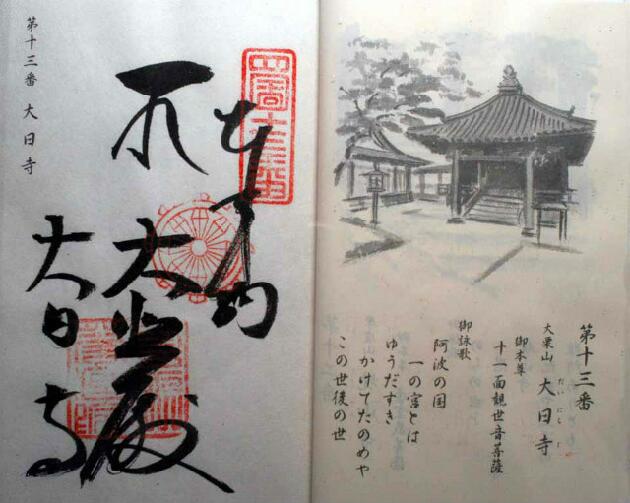 第十三番
大栗山 大日寺
だいにちじ
御本尊
十一面観世音菩薩
御詠歌
阿波の国
一の宮とは
ゆうだすき
かけてたのめや
この世後の世
大悲殿
大日寺
第十三番 大日寺